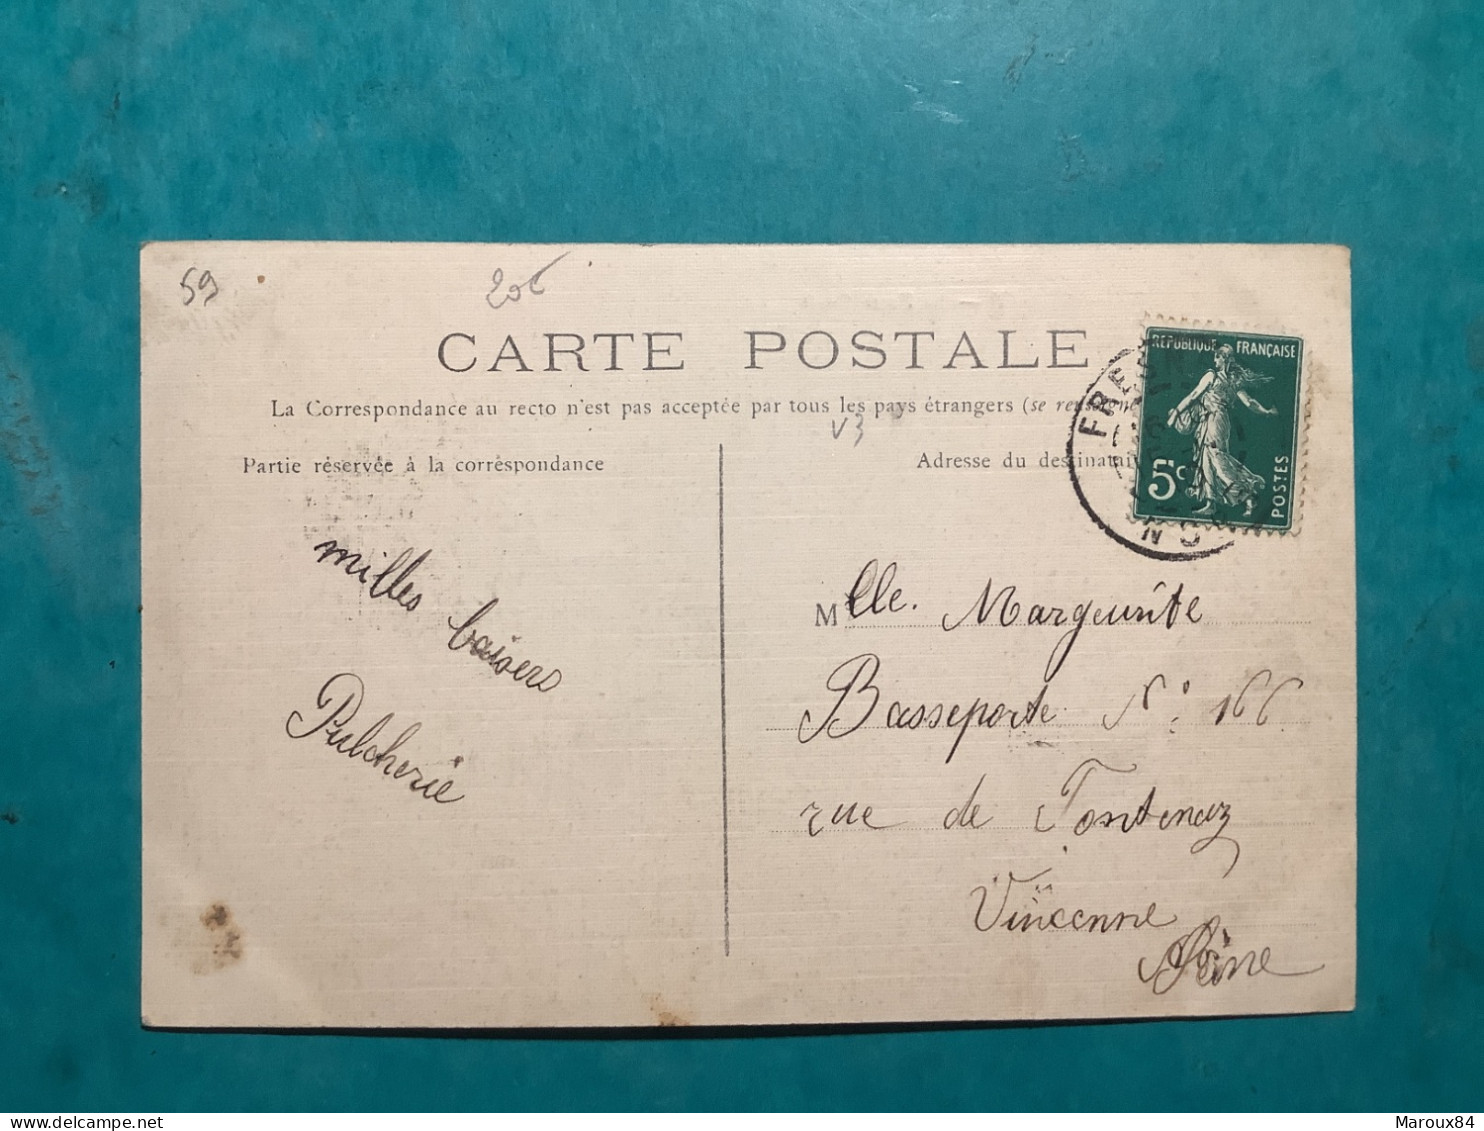 59
206
CARTE POSTALE
La Correspondance au recto n'est pas acceptée par tous les pays étrangers (se
V3
Partie réservée à la correspondance
Adresse du
RÉPUBLIQUE FRANÇAISE
5c
POSTES
milles baisers
Pulcherie
Mlle. Margeurite
Basseporte N° 166
rue de Fontenaz
Vincenne
Seine
Maroux84